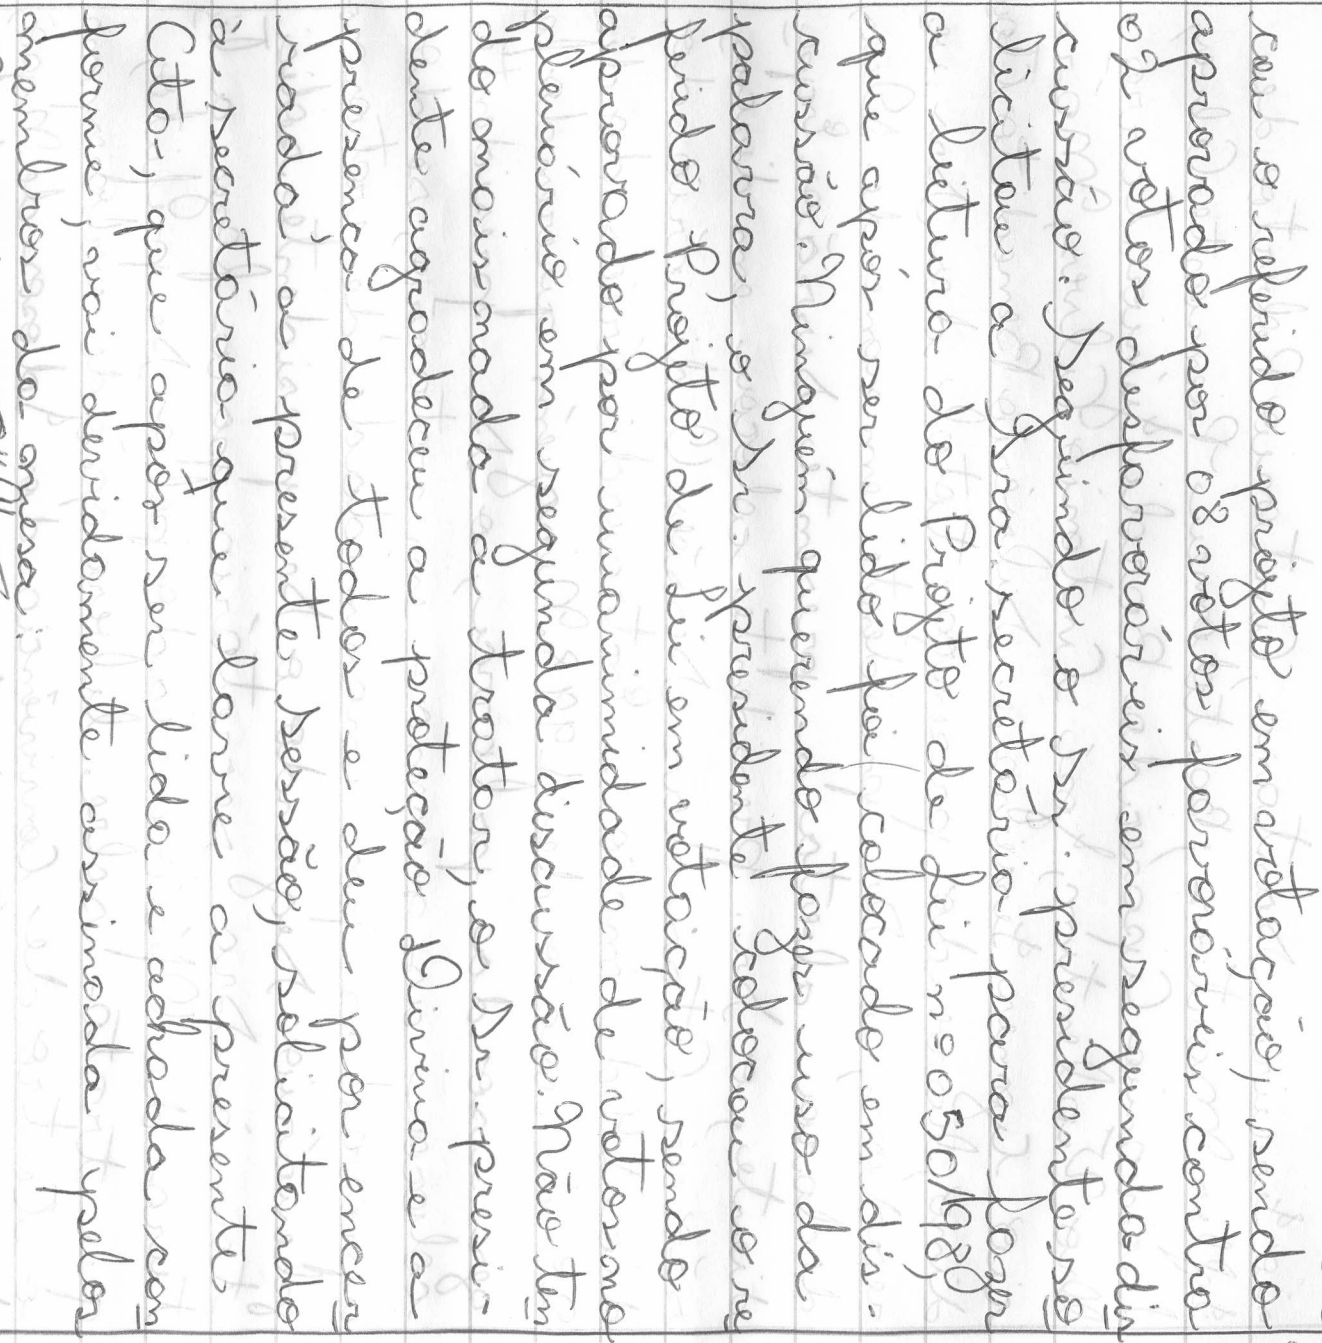 cou o referido projeto em votação, sendo
aprovado por 08 votos favoráveis contra
02 votos desfavoráveis em segunda dis
cussão. Seguindo o Sr. presidente so
licitou a Sra secretária para fazer
a leitura do Projeto de Lei nº 050/98,
que após ser lido foi colocado em dis-
cussão. Ninguém querendo fazer uso da
palavra, o Sr. presidente colocou o re
ferido Projeto de Lei em votação, sendo
aprovado por unanimidade de votos no
plenário em segunda discussão. Não ten
do mais nada a tratar, o Sr. presi-
dente agradeceu a proteção Divina e a
presença de todos e deu por encer
rada a presente sessão, solicitando
à secretária que lavre a presente
Ata, que após ser lida e achada con
forme, vai devidamente assinada pelos
membros da mesa.